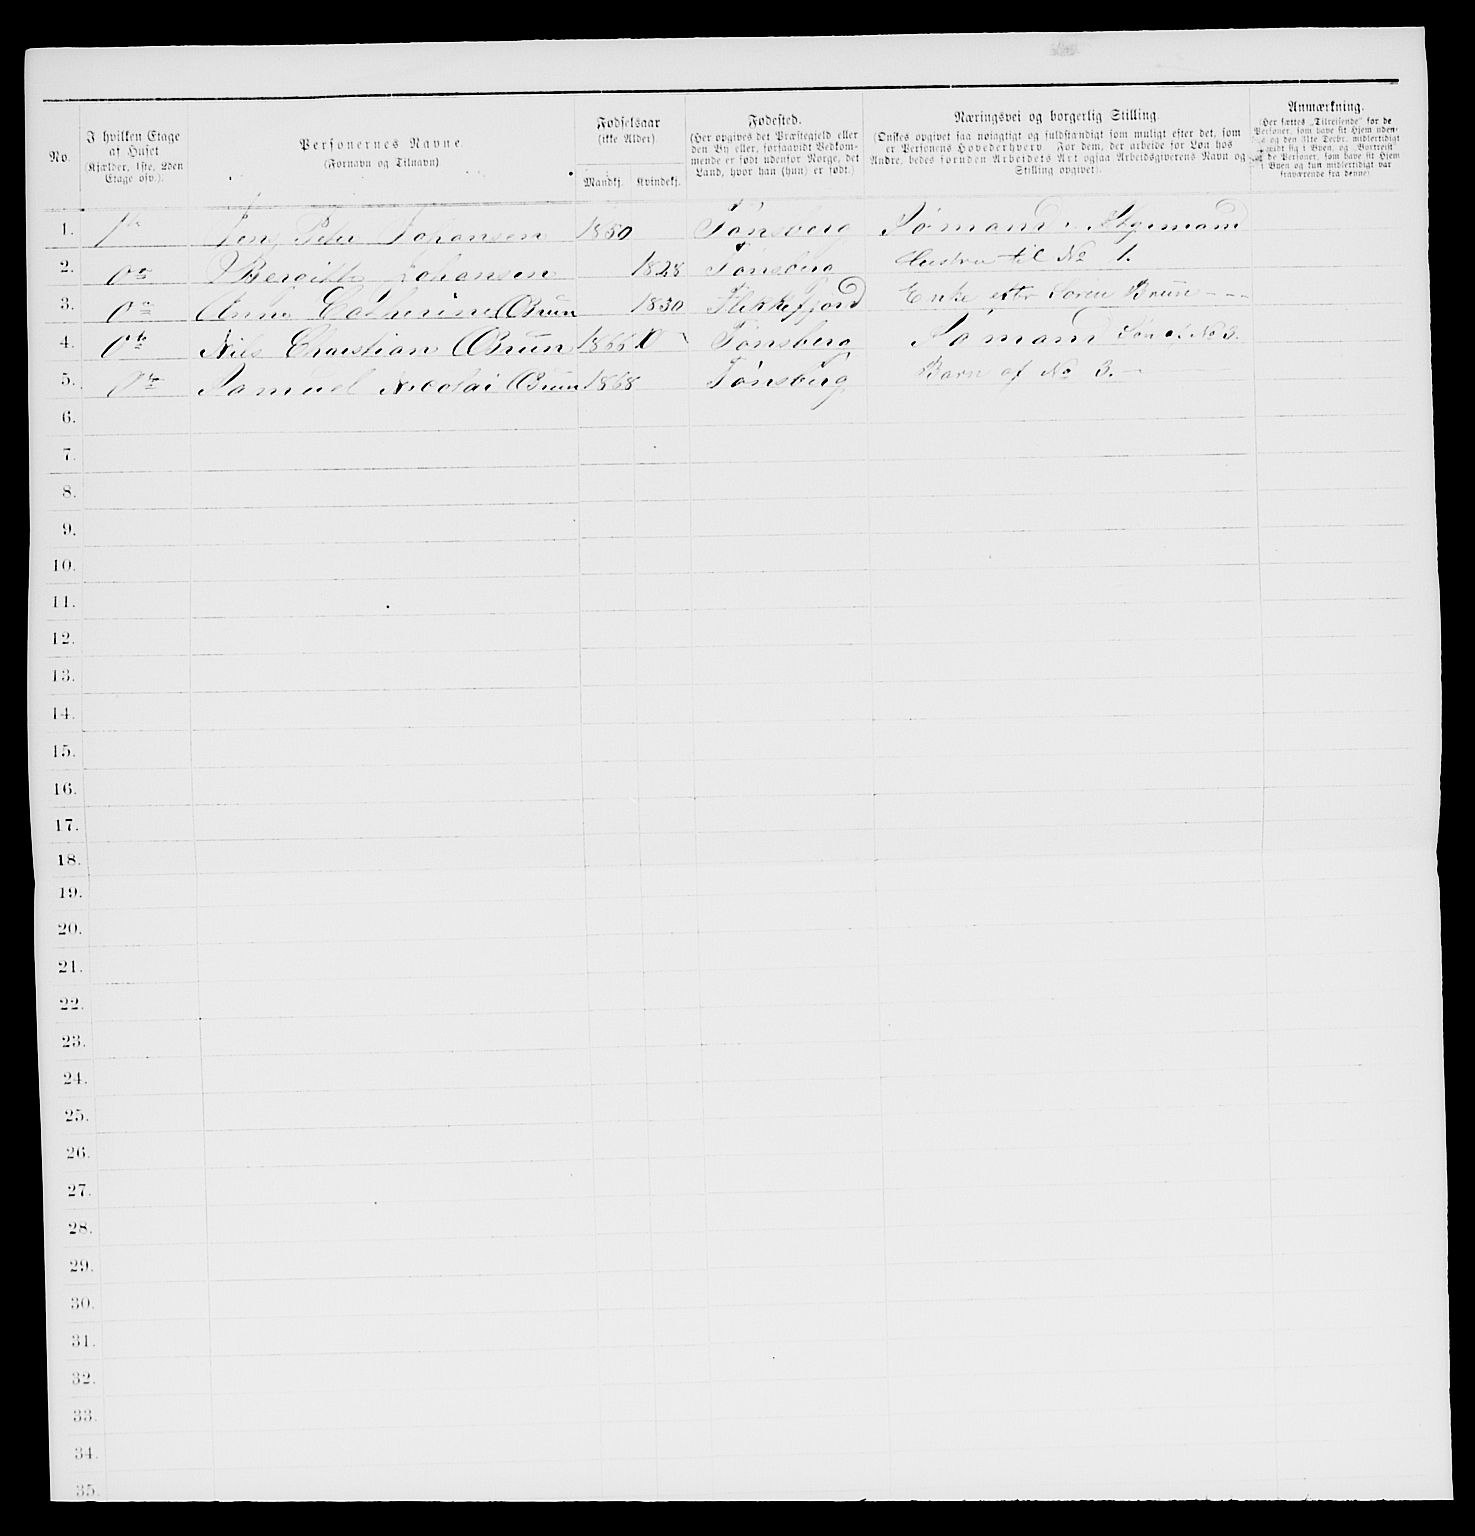 No.
I hvilken Etage
af Huset
(Kjælder, 1ste, 2den
Etage osv.).
Personernes Navne.
(Fornavn og Tilnavn)
Fødselsaar
(ikke Alder)
Mandkj. Kvindekj.
Fødested.
(Her opgives det Præstegjeld eller
den By eller, forsaavidt Vedkom-
mende er født udenfor Norge, det
Land, hvor han (hun) er født.)
Næringsvei og borgerlig Stilling
(Ønskes opgivet saa nøiagtigt og fuldstændigt som muligt efter det, som
er Personens Hovederhverv. For dem, der arbeide for Løn hos
Andre, bedes foruden Arbeidets Art ogsaa Arbeidsgiverens Navn og
Stilling opgivet).
Anmærkning.
(Her sættes „Tilreisende" for de
Personer, som have sit Hjem uden-
og den 31te Decbr. midlertidigt
sig i Byen, og „Bortreist"
de Personer, som have sit Hjem
i Byen og kun midlertidigt var
fraværende fra denne)
1. 1ste Jens Peter Johansen 1830 Tønsberg Sømand
2. Do Bergitte Johansen 1828 Tønsberg Hustru til No 1.
3. Do Anne Cathrine Bruun 1830 Flekkefjord Enke efter Søren Bruun - - -
4. Do Nils Christian Bruun 1866 Tønsberg Sømand Søn af No 3.
5. Do Samuel Nicolai Bruun 1868 Tønsberg Barn af No 3. -
6.
7.
8.
9.
10.
11.
12.
13.
14.
15.
16.
17.
18.
19.
20.
21.
22.
23.
24.
25.
26.
27.
28.
29.
30.
31.
32.
33.
34.
35.